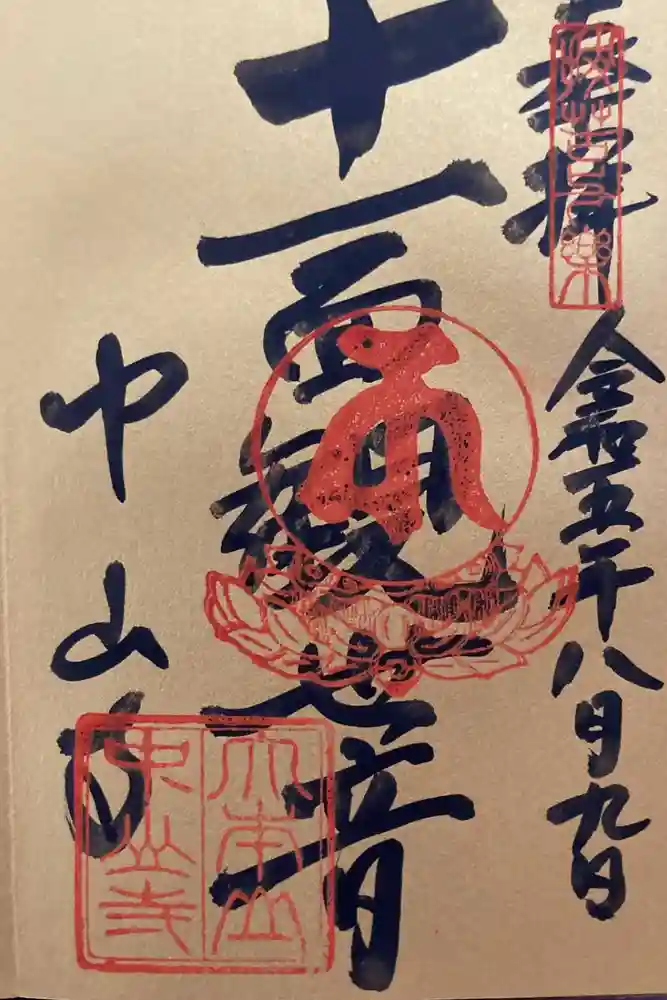 奉拝
令和五年八月九日
十一面観世音
中山寺
大本山
中山寺